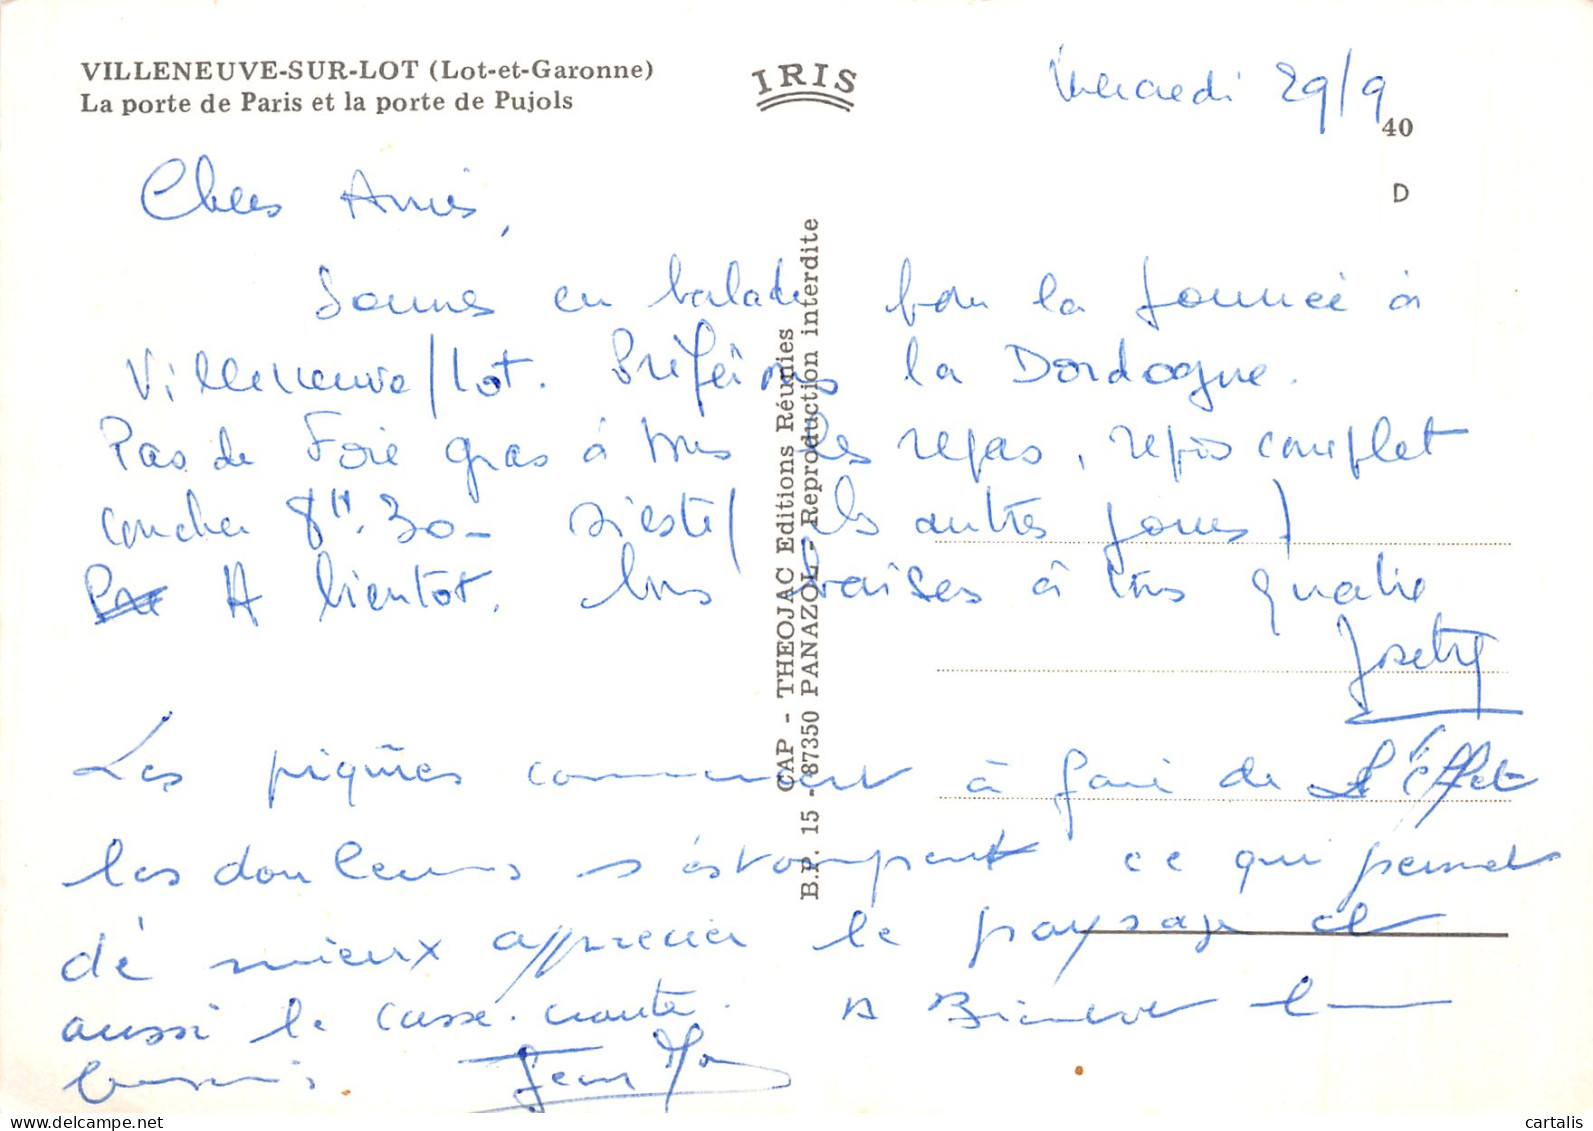 VILLENEUVE-SUR-LOT (Lot-et-Garonne)
La porte de Paris et la porte de Pujols
IRIS
Mercredi 29/9
40
D
Chers Amis,
Sommes en balade pour la journée à
Villeneuve/Lot. Préférons la Dordogne.
Pas de Foie gras à tous les repas, repos complet
coucher 8H.30 - sieste (les autres jours)
A bientot. Bons baisers à tous quatre
Josette
Les piqûres commencent à faire de l'Effet
les douleurs s'estompent ce qui permet
de mieux apprecier le paysage et
aussi le casse-croute. A Bientot
Jean
CAP - THEOJAC Editions Réunies
B.P. 15 - 87350 PANAZOL - Reproduction interdite
www.delcampe.net
cartalis